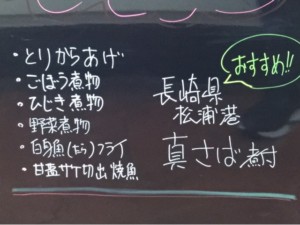 ・とりからあげ
・ごぼう煮物
・ひじき煮物
・野菜煮物
・白身魚(たら)フライ
・甘塩サケ切出焼魚
おすすめ!!
長崎県
松浦港
真さば煮付